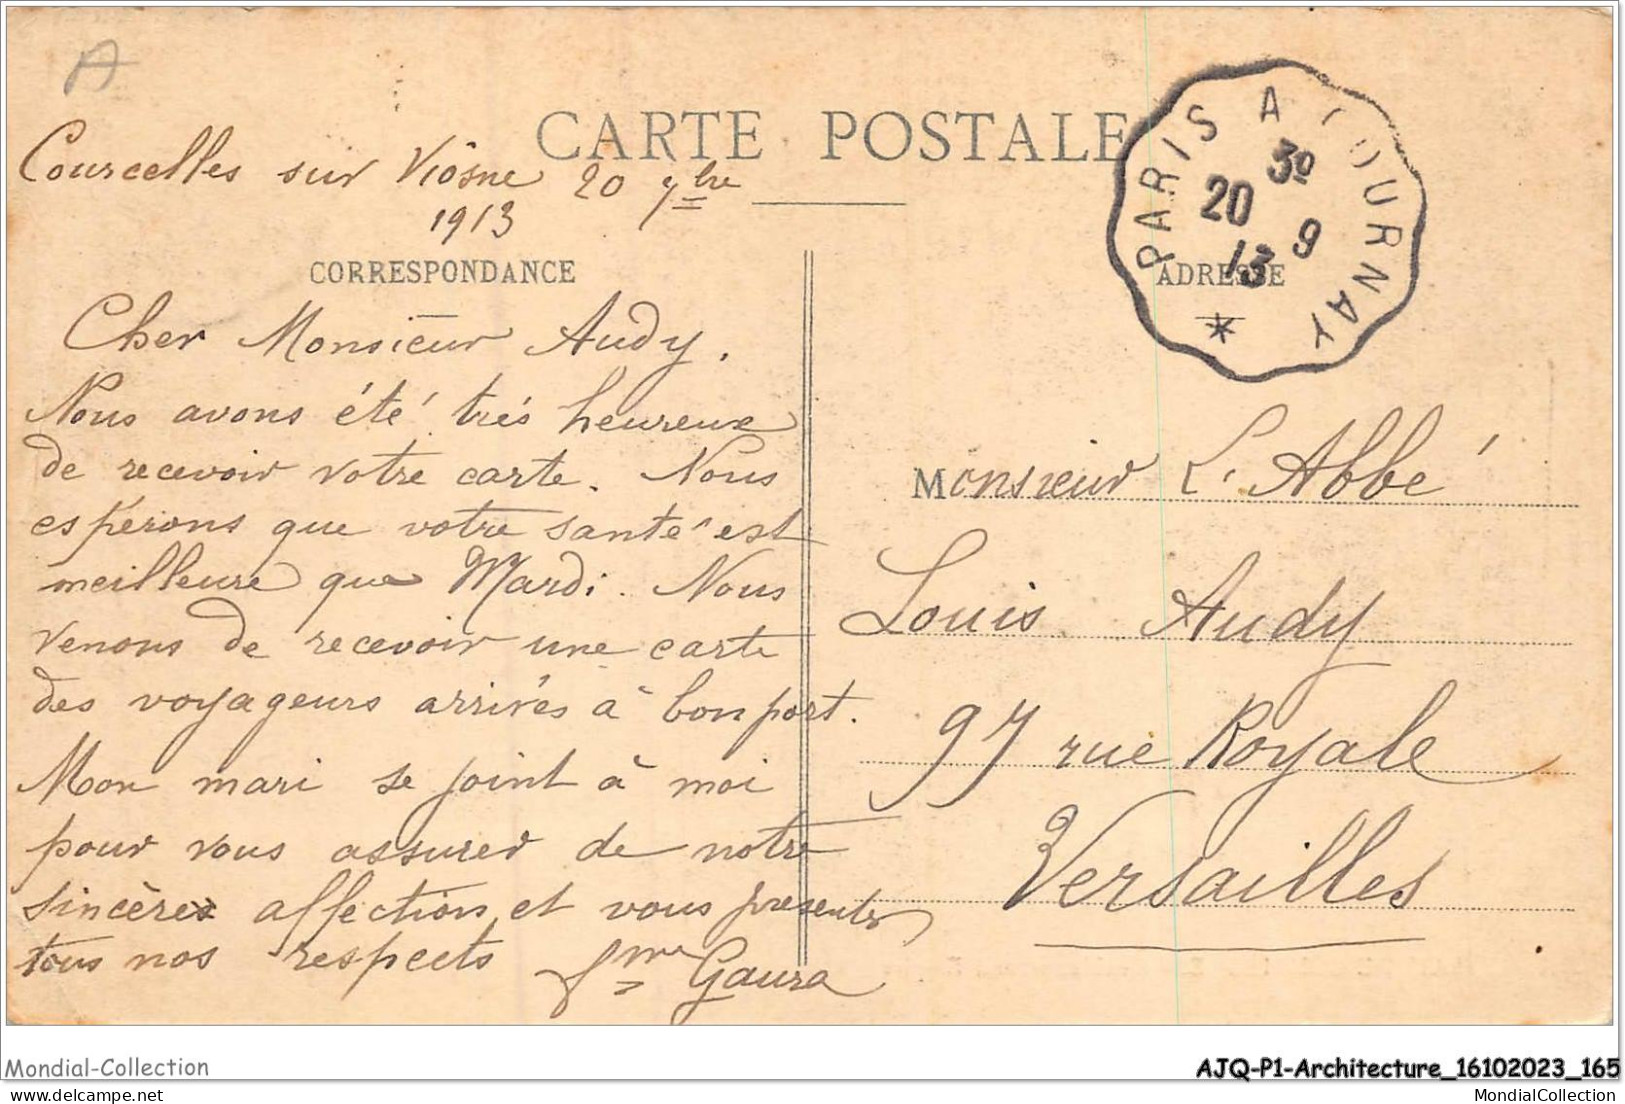 A
CARTE POSTALE
Courcelles sur Viosne 20 7bre
1913
CORRESPONDANCE
Cher Monsieur Audy.
Nous avons été très heureux
de recevoir votre carte. Nous
espérons que votre santé est
meilleure que Mardi. Nous
venons de recevoir une carte
des voyageurs arrivés à bon port.
Mon mari se joint à moi
pour vous assurer de notre
sincère affection et vous presenter
tous nos respects
Gaura
PARIS A GOURNAY
3º
20 9
13
ADRESSE
Monsieur L'Abbé
Louis Audy
97 rue Royale
Versailles
Mondial-Collection
AJQ-P1-Architecture_16102023_165
delcampe.net
MondialCollection